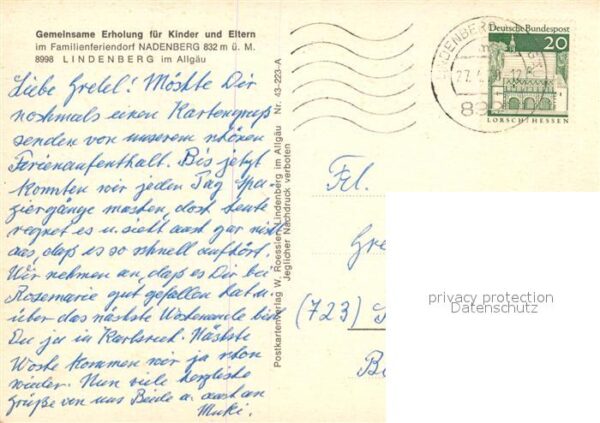 Gemeinsame Erholung für Kinder und Eltern
im Familienferiendorf NADENBERG 832 m ü. M.
8998 LINDENBERG im Allgäu
Liebe Gretel! Möchte Dir
nochmals einen Kartengruß
senden von unserem schönen
Ferienaufenthalt. Bis jetzt
konnten wir jeden Tag Spa-
ziergänge machen, doch heute
regnet es u. sieht auch gar nicht
aus, daß es so schnell aufhört.
Wir nehmen an, daß es Dir bei
Rosemarie gut gefallen hat u.
über das nächste Wochenende bist
Du ja in Karlsruh. Nächste
Woche kommen wir ja schon
wieder. Nun viele herzliche
Grüße von uns Beide u. auch an
Muki.
Postkartenverlag W. Roessler Lindenberg im Allgäu Nr. 43-223-A
Jeglicher Nachdruck verboten
LINDENBERG
27.4.
899
Deutsche Bundespost
20
LORSCH/HESSEN
Frl.
Gre
(723)
privacy protection
Datenschutz